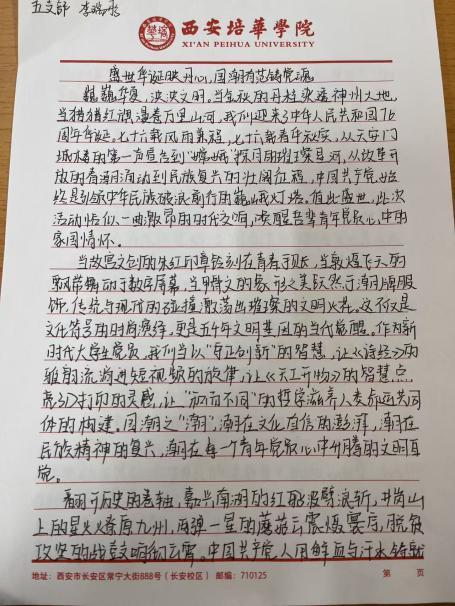 五支部 李
西安培華學院
XI'AN PEIHUA UNIVERSITY
盛世华诞映丹心，国潮有范铸党魂
巍巍华夏，泱泱文明。当金秋的丹桂染透神州大地，
当猎猎红旗漫卷万里山河，我们迎来了中华人民共和国76
周年华诞。七十六载风雨兼程，七十六载春华秋实，从天安门
城楼的第一声宣告到"嫦娥"探月的璀璨星河，从改革开
放的春潮涌动到民族复兴的壮阔征程，中国共产党始
终是引领中华民族破浪前行的巍峨灯塔。值此盛世，此次
活动恰似一曲激昂的时代交响，唤醒吾辈青年党员心中的
家国情怀。
当故宫文创的朱红印章铃刻在青春手帐，当敦煌飞天的
飘带舞动于数字屏幕，当甲骨文的象形之美跃然于潮牌服
饰，传统与现代的碰撞激荡出璀璨的文明火花。这不仅是
文化符号的时尚演绎，更是五千年文明基因的当代觉醒。作为新
时代大学生党员，我们当以"守正创新"的智慧，让《诗经》的
雅韵流淌进短视频的旋律，让《天工开物》的智慧点
亮3D打印的灵感，让"和而不同"的哲学滋养人类命运共同
体的构建。国潮之"潮"，潮在文化自信的澎湃，潮在
民族精神的复兴，潮在每一个青年党员心中升腾的文明自
觉。
翻开历史的卷轴，嘉兴南湖的红船波劈浪斩，井岗山
上的星火燎原九州，两弹一星的蘑菇云震慑寰宇，脱贫
攻坚的战鼓响彻云霄。中国共产党人用鲜血与汗水铸就
地址：西安市长安区常宁大街888号（长安校区） 邮编：710125 第 页